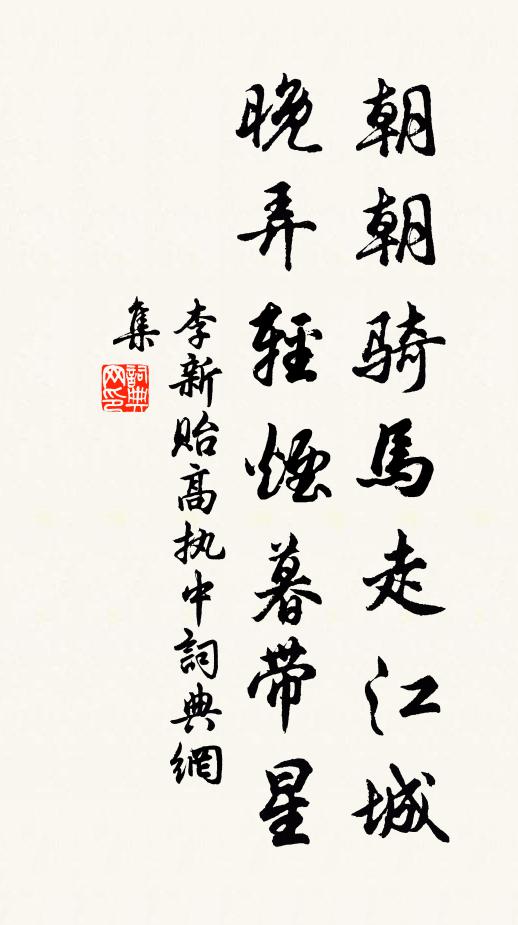 朝朝騎馬走江城
晚弄輕煙暮帶星
李新貽高执中詞典網
集
詞典网印